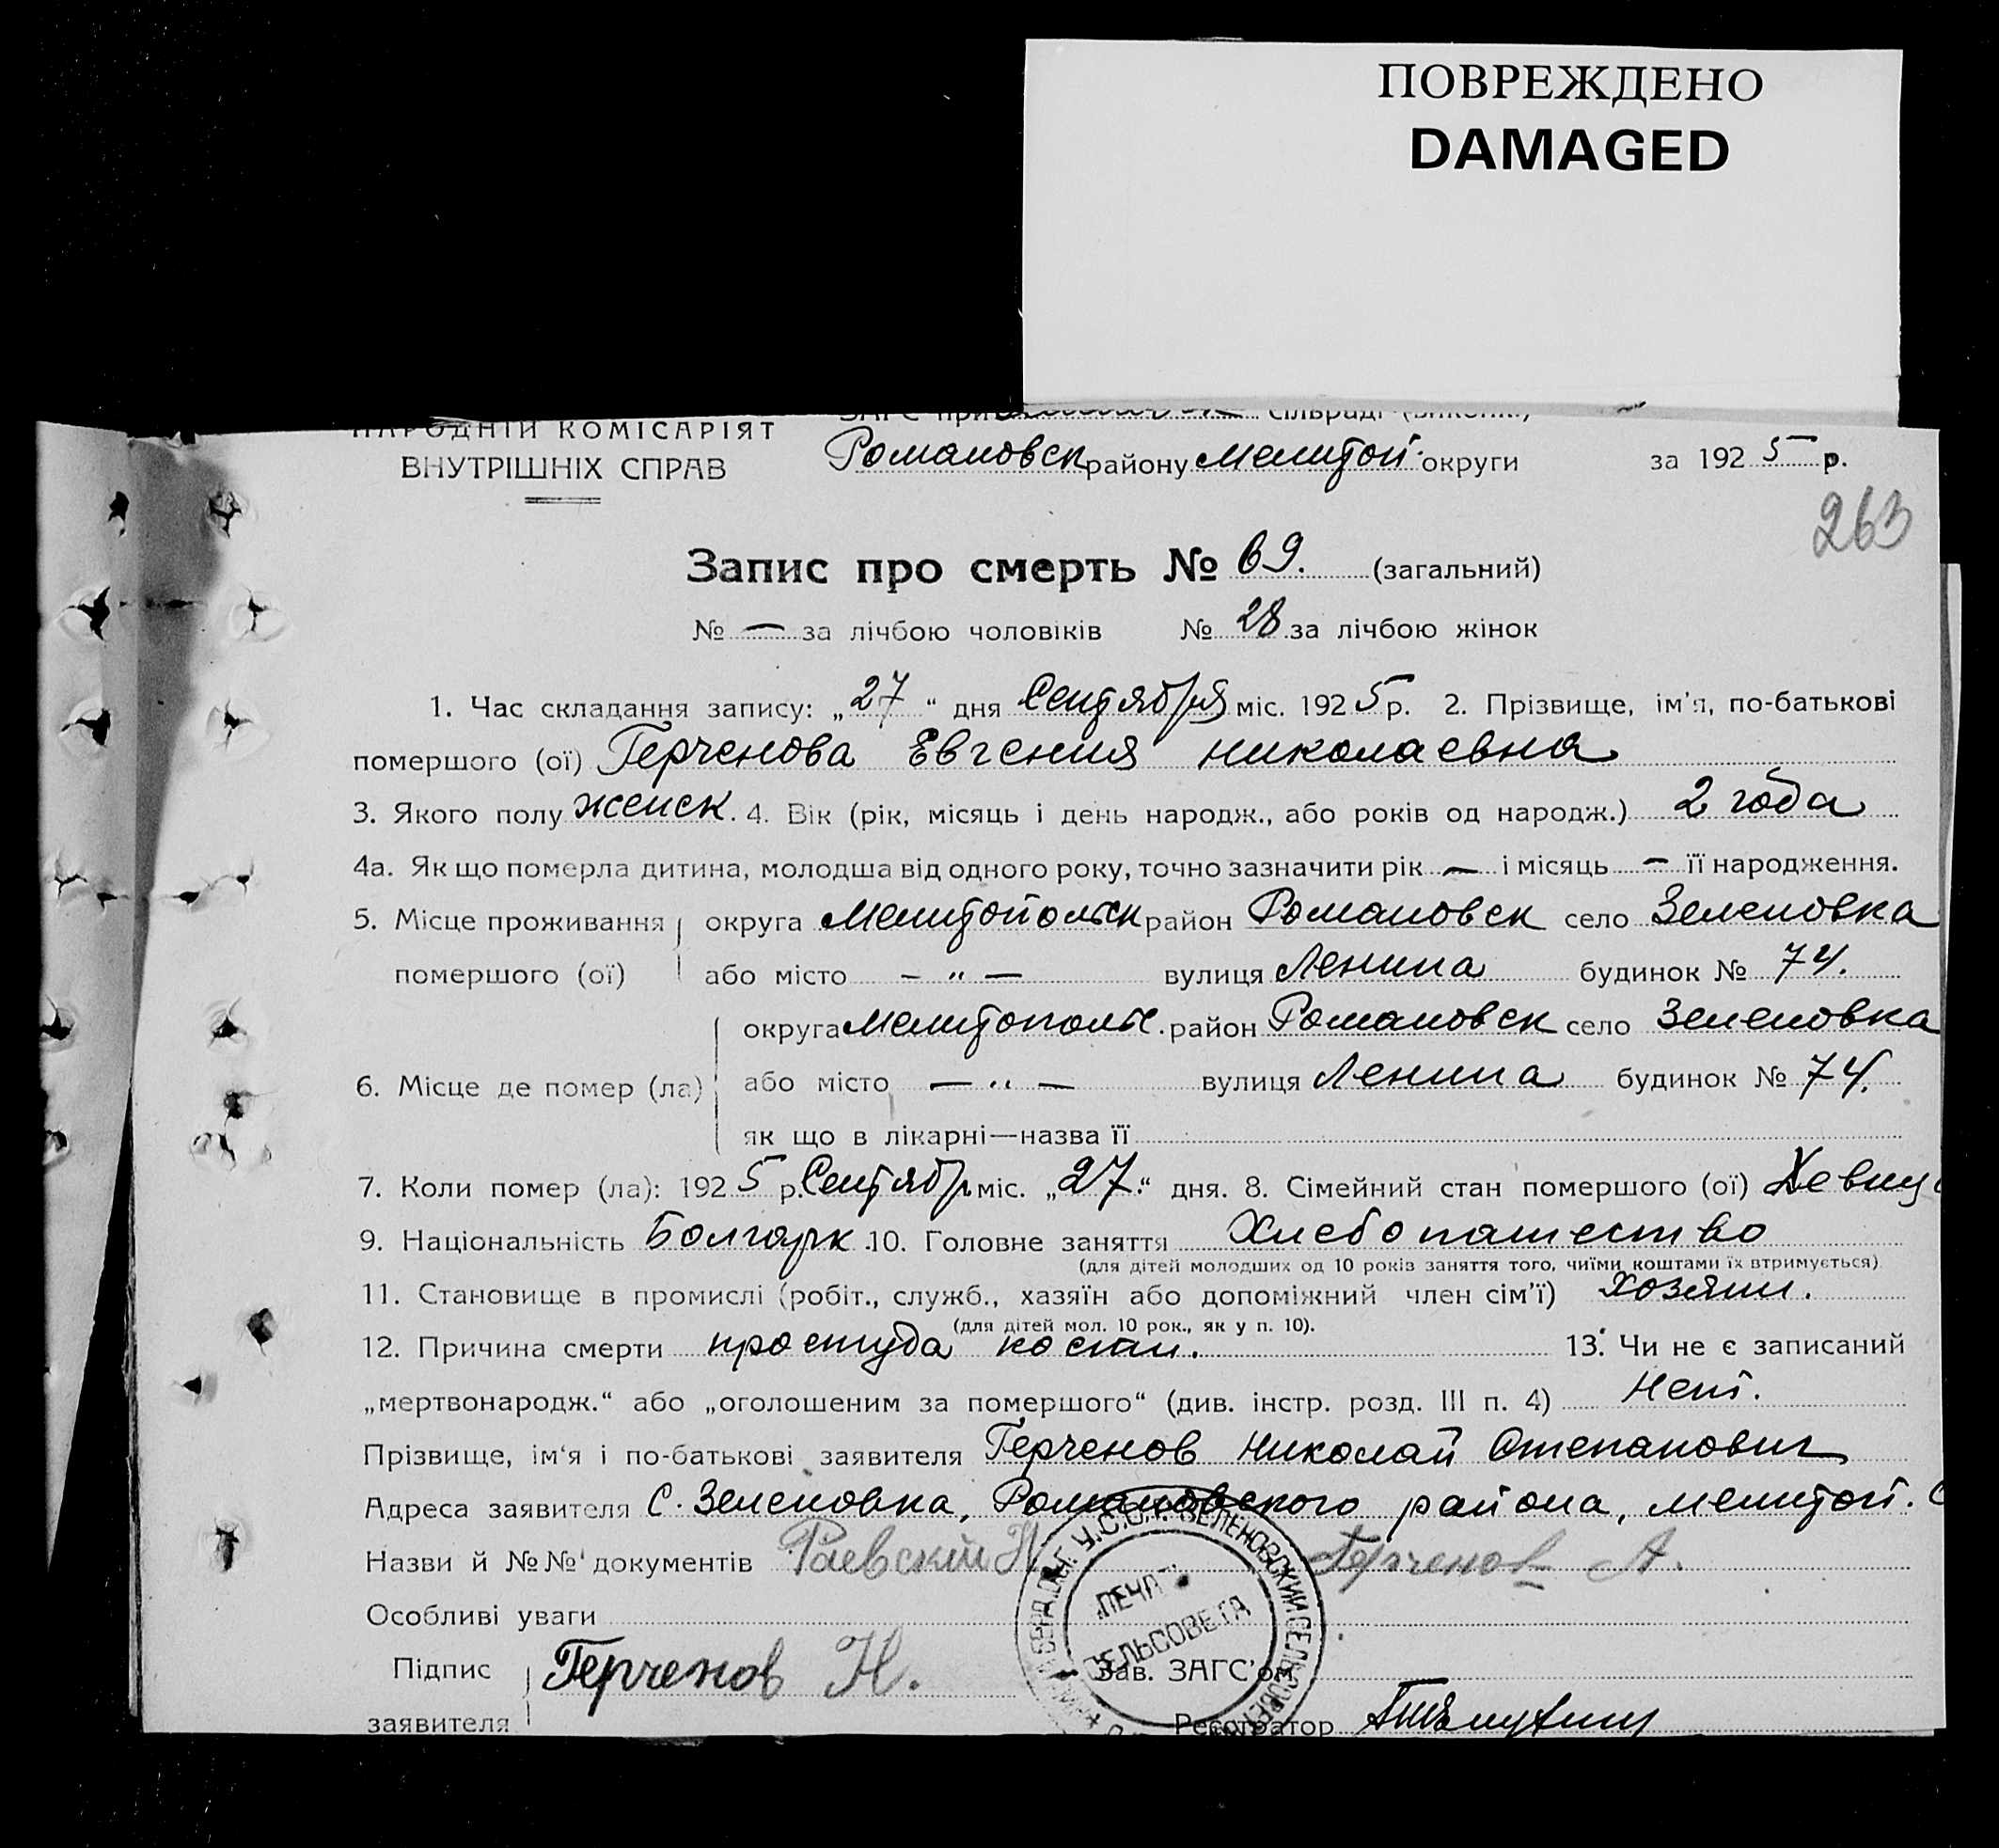 ПОВРЕЖДЕНО
DAMAGED
НАРОДНІЙ КОМІСАРІЯТ
ВНУТРІШНІХ СПРАВ
ЗАГС при сільраді
Романовск району Мелитоп. округи за 1925 р.
263
Запис про смерть № 69. (загальний)
№ — за лічбою чоловіків № 28 за лічбою жінок
1. Час складання запису: „27“ дня Сентября міс. 1925 р. 2. Прізвище, ім'я, по-батькові
помершого (ої) Герченова Евгения Николаевна
3. Якого полу женск. 4. Вік (рік, місяць і день народж., або років од народж.) 2 года
4а. Як що померла дитина, молодша від одного року, точно зазначити рік — і місяць — її народження.
5. Місце проживання округа Мелитопольск район Романовск село Зеленовка
помершого (ої) або місто — „ — вулиця Ленина будинок № 74.
округа Мелитопольс. район Романовск село Зеленовка
6. Місце де помер (ла) або місто — „ — вулиця Ленина будинок № 74.
як що в лікарні—назва її
7. Коли помер (ла): 1925 р. Сентябр міс. „27.“ дня. 8. Сімейний стан помершого (ої)
9. Національність Болгарк. 10. Головне заняття Хлебопашество
(для дітей молодших од 10 років заняття того, чиїми коштами їх втримується)
11. Становище в промислі (робіт., служб., хазяїн або допоміжний член сім'ї) хозяин.
(для дітей мол. 10 рок., як у п. 10).
12. Причина смерти простуда 13. Чи не є записаний
„мертвонародж.“ або „оголошеним за помершого“ (див. інстр. розд. III п. 4) Нет.
Прізвище, ім'я і по-батькові заявителя Герченов Николай Степанович
Адреса заявителя С. Зеленовка, Романовского района, Мелитоп.
Назви й №№ документів Раевский Н Герченов А.
Особливі уваги
Підпис Герченов Н. Зав. ЗАГС'ом
заявителя Реєстратор
У.С.С.Р. ЗЕЛЕНОВСКИЙ СЕЛЬСОВЕТ
ПЕЧАТЬ
СЕЛЬСОВЕТА